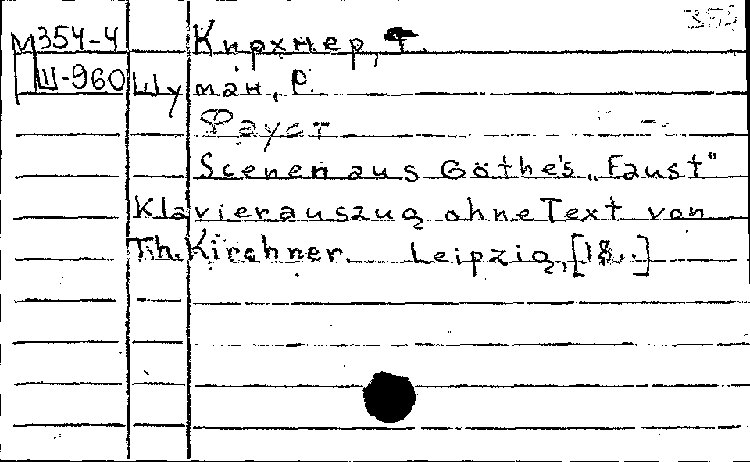 М354-4 Кирхнер, Т.
Ш-960 Шуман, Р.
Фауст
Scenen aus Göthe's „Faust"
Klavierauszug ohne Text von
Th. Kirchner. Leipzig, [18..]